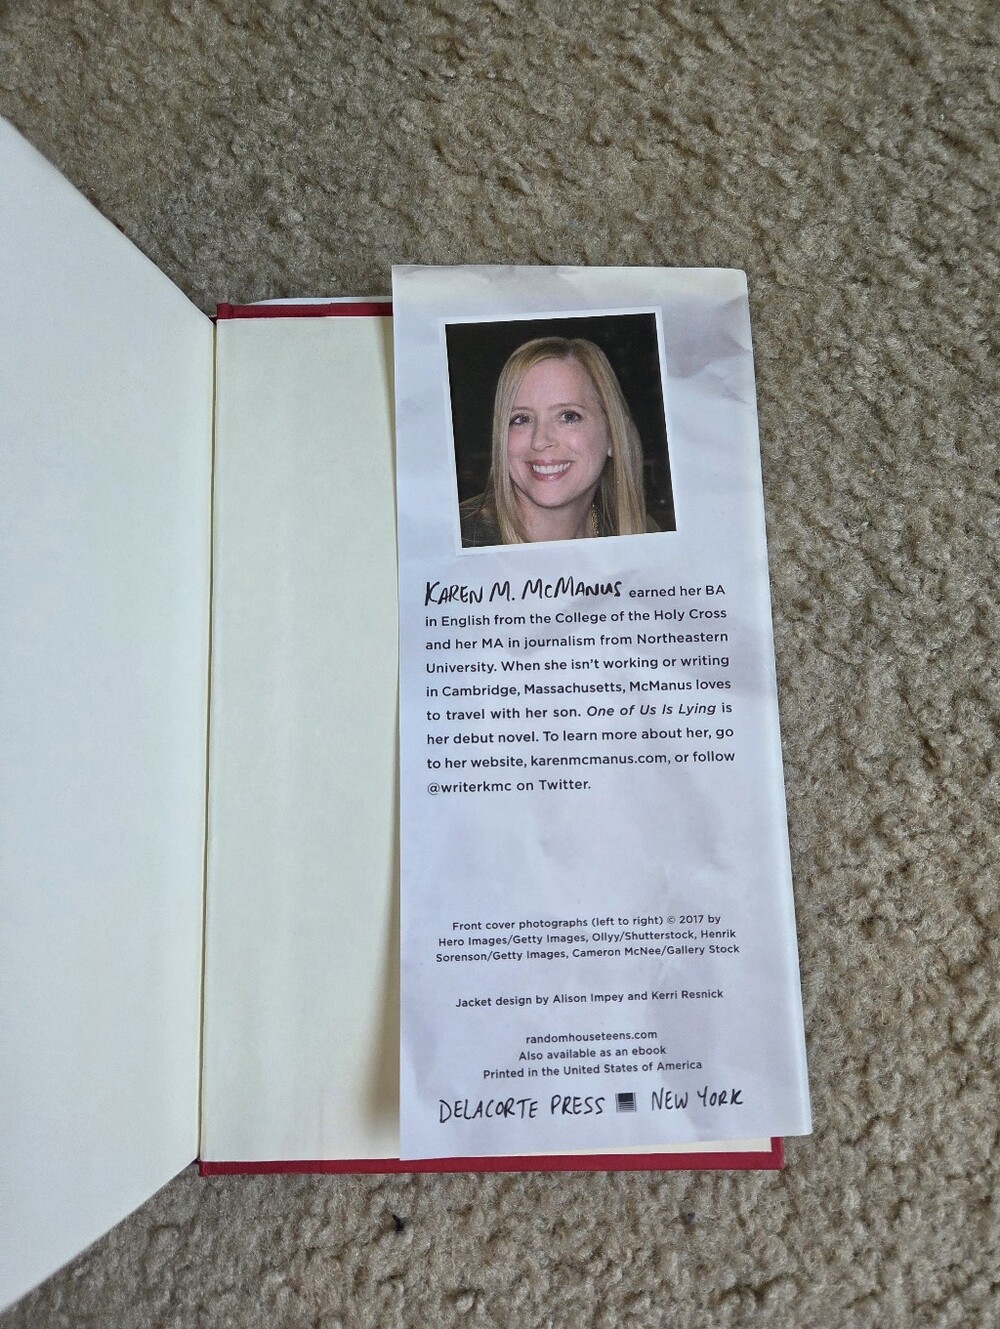 KAREN M. MCMANUS earned her BA
in English from the College of the Holy Cross
and her MA in journalism from Northeastern
University. When she isn't working or writing
in Cambridge, Massachusetts, McManus loves
to travel with her son. One of Us Is Lying is
her debut novel. To learn more about her, go
to her website, karenmcmanus.com, or follow
@writerkmc on Twitter.
Front cover photographs (left to right) © 2017 by
Hero Images/Getty Images, Ollyy/Shutterstock, Henrik
Sorenson/Getty Images, Cameron McNee/Gallery Stock
Jacket design by Alison Impey and Kerri Resnick
randomhouseteens.com
Also available as an ebook
Printed in the United States of America
DELACORTE PRESS NEW YORK